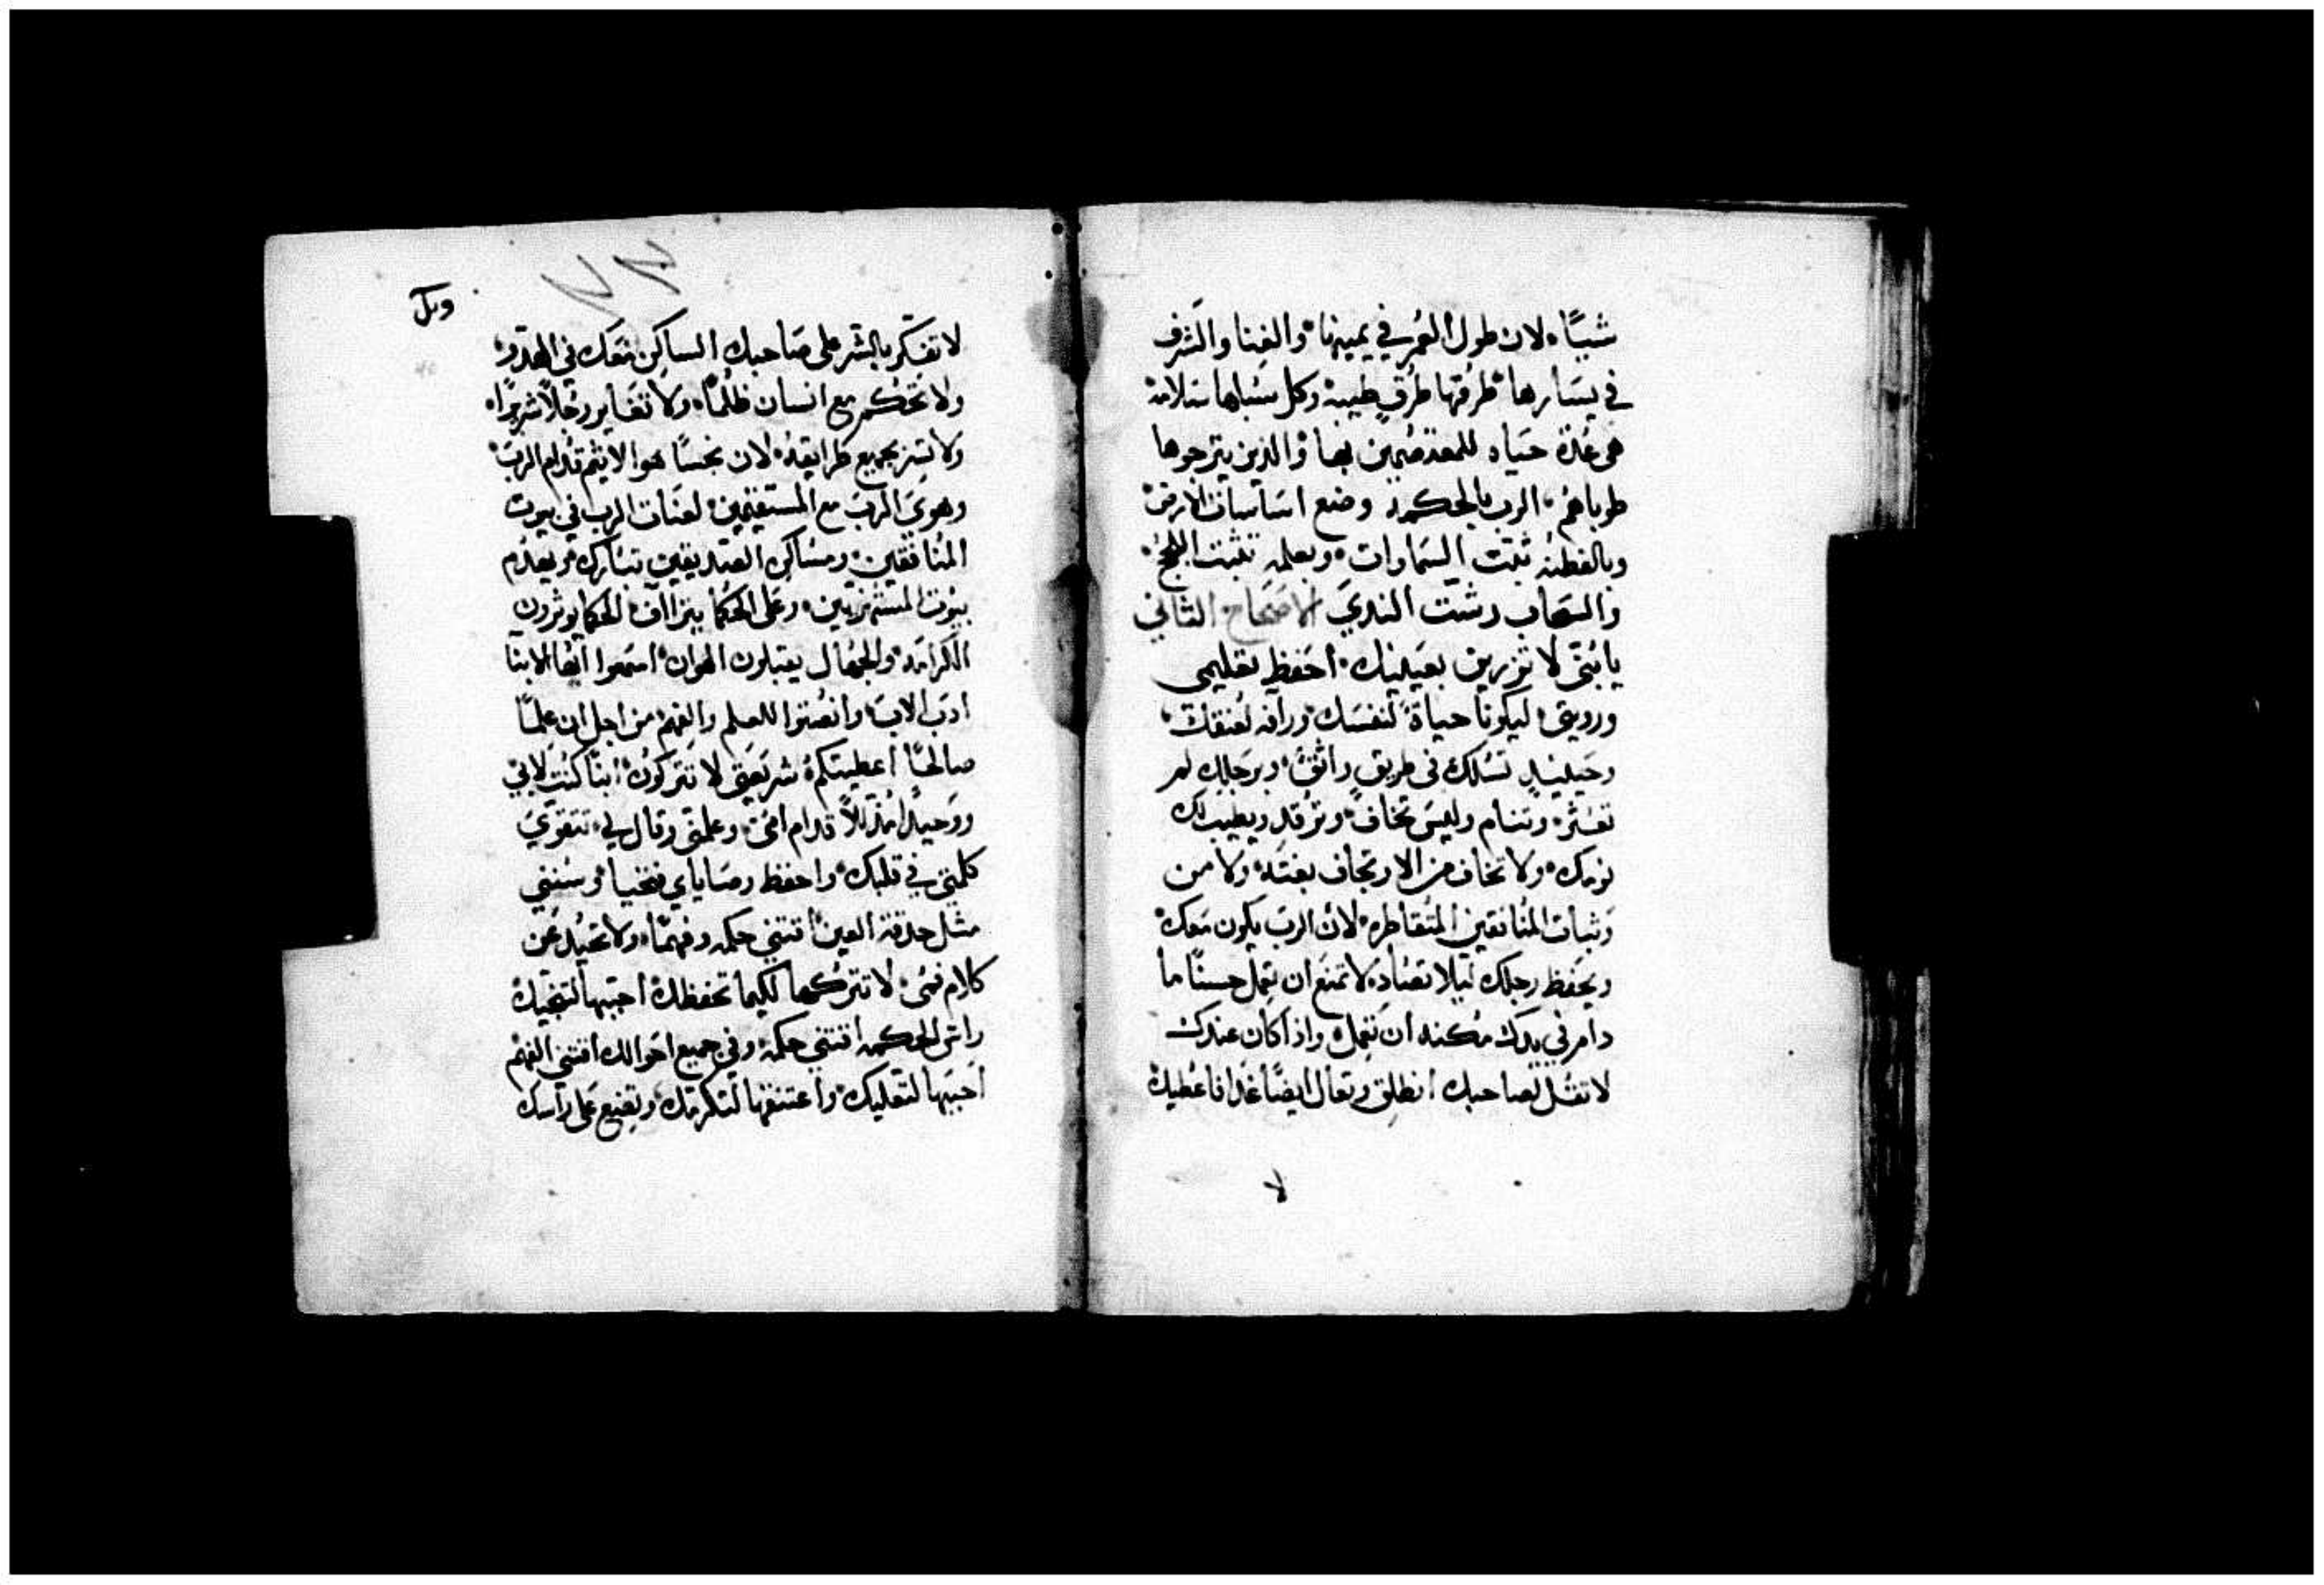 شيئًا لان طول العمر في يمينها والغنا والشرف
في يسارها طرقها طرق طيبه وكل سبلها سلامه
هي عدة حياه للمعتصمين بها والذين يترجوها
طوباهم الرب بالحكمه وضع اساسات الارض
وبالفطنه ثبتت السماوات وبعلمه تثبت اللجج
والسحاب رشت الندي الاصحاح الثاني
يا بُني لا تزرين بعينيك احفظ تعليمي
ورويتي ليكونا حياة لنفسك ورافه لعنقك
وحينيدٍ تسلك في طريق واثق وبرجلك لم
تعثر وتنام وليس تخاف وترقد ويطيب لك
نومك ولا تخاف من الارتجاف بغته ولا من
وثبات المنافقين المتقاطره لان الرب يكون معك
ويحفظ رجلك ليلا تصاد لا تمنع ان تعمل حسنًا ما
دام في يدك مكنه ان تعمل واذا كان عندك
لا تقل لصاحبك انطلق وتعال ايضًا غدا فاعطيك
لا
لا تفكر بالشر على صاحبك الساكن معك في الهدو
ولا تحكم مع انسان ظلمًا ولا تغاير رجلاً شريرًا
ولا تسر بجميع طرايقه لان نجسًا هو الاثم قدام الرب
وهوي الرب مع المستقيمين لعنات الرب في بيوت
المنافقين ومساكن الصديقين تبارك ويعدم
بيوت المستهزيين وعلى الحكما يتزااف الحكما يوثرون
الكرامه والجهال يقبلون الهوان اسمعوا ايها الابنا
ادب الاب وانصتوا للعلم والفهم من اجل ان علمًا
صالحًا اعطيتكم شريعتي لا تتركون ابنًا كنت لابي
ووحيدًا مذللاً قدام امي وعلمني وقال لي تتقوي
كلمتي في قلبك واحفظ وصاياي فتحيا وسنتي
مثل حدقة العين اقتني حكمه وفهمًا ولا تحيد عن
كلام فمي لا تتركها لكيما تحفظك احببها لتنجيك
راس الحكمه اقتني حكمه وفي جميع احوالك اقتني الفهم
احببها لتعليك واعتنقها لتكرمك وتضع على راسك